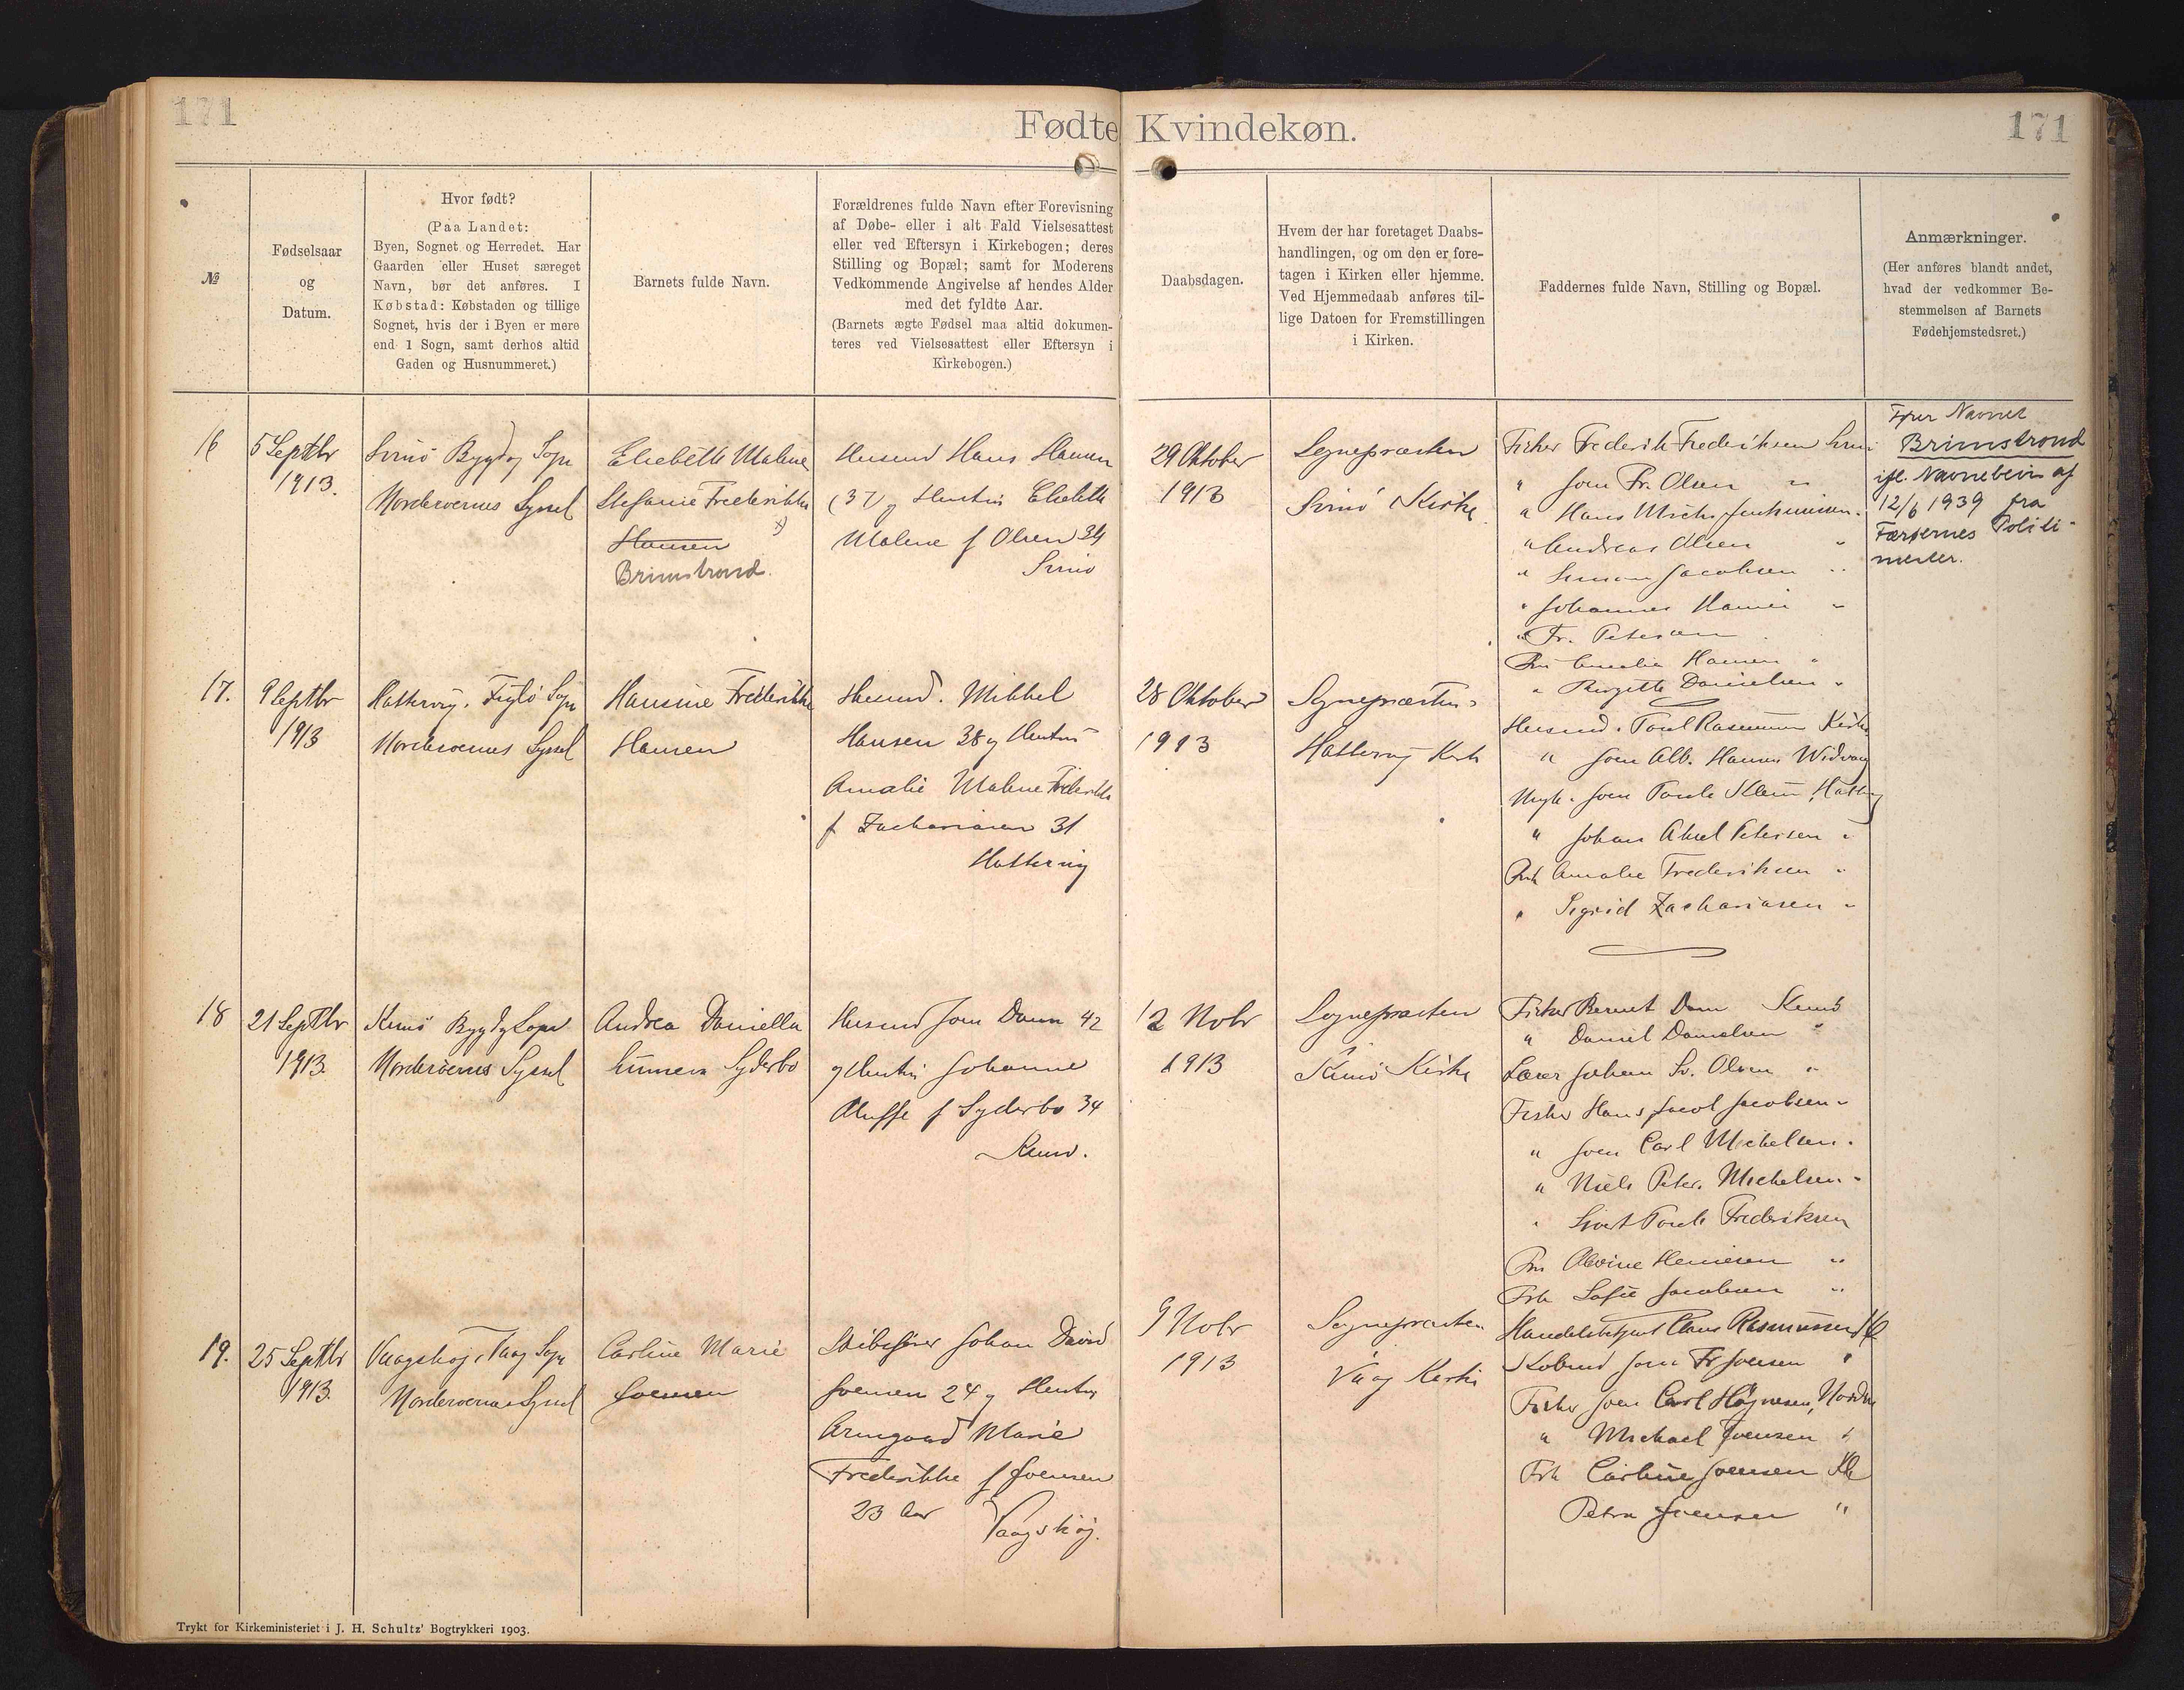 171
Fødte Kvindekøn.
171
№
Fødselsaar
og
Datum.
Hvor født?
(Paa Landet:
Byen, Sognet og Herredet. Har
Gaarden eller Huset særeget
Navn, bør det anføres. I
Købstad: Købstaden og tillige
Sognet, hvis der i Byen er mere
end 1 Sogn, samt derhos altid
Gaden og Husnummeret.)
Barnets fulde Navn.
Forældrenes fulde Navn efter Forevisning
af Døbe- eller i alt Fald Vielsesattest
eller ved Eftersyn i Kirkebogen; deres
Stilling og Bopæl; samt for Moderens
Vedkommende Angivelse af hendes Alder
med det fyldte Aar.
(Barnets ægte Fødsel maa altid dokumen-
teres ved Vielsesattest eller Eftersyn i
Kirkebogen.)
Daabsdagen.
Hvem der har foretaget Daabs-
handlingen, og om den er fore-
tagen i Kirken eller hjemme.
Ved Hjemmedaab anføres til-
lige Datoen for Fremstillingen
i Kirken.
Faddernes fulde Navn, Stilling og Bopæl.
Anmærkninger.
(Her anføres blandt andet,
hvad der vedkommer Be-
stemmelsen af Barnets
Fødehjemstedsret.)
16
5 Septbr
1913.
Svinö Bygd og Sogn
Norderoernes Syssel
Elsebeth Malene
Stefanie Frederikke
Hansen x)
Brimstrond.
Husmd Hans Hansen
(37) og Hustru Elsebeth
Malene f Olsen 34
Svinö
29 Oktober
1913
Sognepræsten
Svinö Kirke
Fisker Frederik Frederiksen
" Joen Fr. Olsen "
" Hans Michs
" Andreas Olsen "
" Simon Jacobsen "
" Johannes Hansen "
" Fr. Petersen
Amalia Hansen "
" Birgitte Danielsen "
Fører Navnet
Brimstrond
ifl. Navnebevis af
12/6 1939 fra
Færøernes Politi-
mester.
17.
9 Septbr
1913
Hattervig, Fuglö Sogn
Norderoernes Syssel
Hansine Frederikke
Hansen
Husmd. Mikkel
Hansen 38 og Hustru
Amalie Malene Frederikke
f Zachariasen 31
Hattervig
28 Oktober
1913
Sognepræsten
Hattervig Kirke
Husmd. Poul Rasmussen
" Joen Alb. Hansen
Ungk. Joen Poule
" Johan Aksel Petersen "
Frk Amalie Frederiksen "
" Sigrid Zachariasen "
18
21 Septbr
1913.
Kunö Bygd og Sogn
Norderoernes Syssel
Andrea Daniella
Sunneva Syderbö
Husmd Joen Dam 42
og Hustru Johanne
f Syderbö 34
Kunö.
12 Nobr
1913
Sognepræsten
Kunö Kirke
Fisker Berint Dam Kunö
" Daniel Danielsen "
Lærer Johan Sv. Olsen "
Fisker Hans Jacob Jacobsen "
" Joen Carl Michelsen "
" Niels Peter Michelsen "
" Sivert Poule Frederiksen
Alvine Heinesen "
Frk Sofie Jacobsen "
19.
25 Septbr
1913.
Vaagskøj, Vaag Sogn
Norderoernes Syssel
Carline Marie
Joensen
Skibsfører Johan David
Joensen 24 og Hustru
Armgaard Marie
Frederikke f Joensen
23 Aar Vaagskøj.
9 Nobr
1913
Sognepræsten
Vaag Kirke
Rasmussen
Joen Fr Joensen "
Fisker Joen Carl Høgnesen,
" Michael Joensen "
Frk Carline Joensen
Petra Joensen "
Trykt for Kirkeministeriet i J. H. Schultz' Bogtrykkeri 1903.